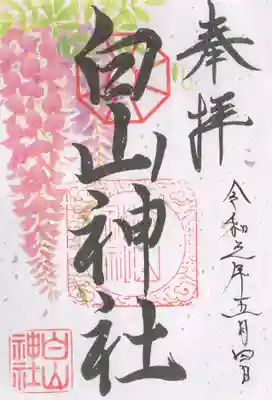 奉拝
白山神社
令和元年五月四日
白山
神社